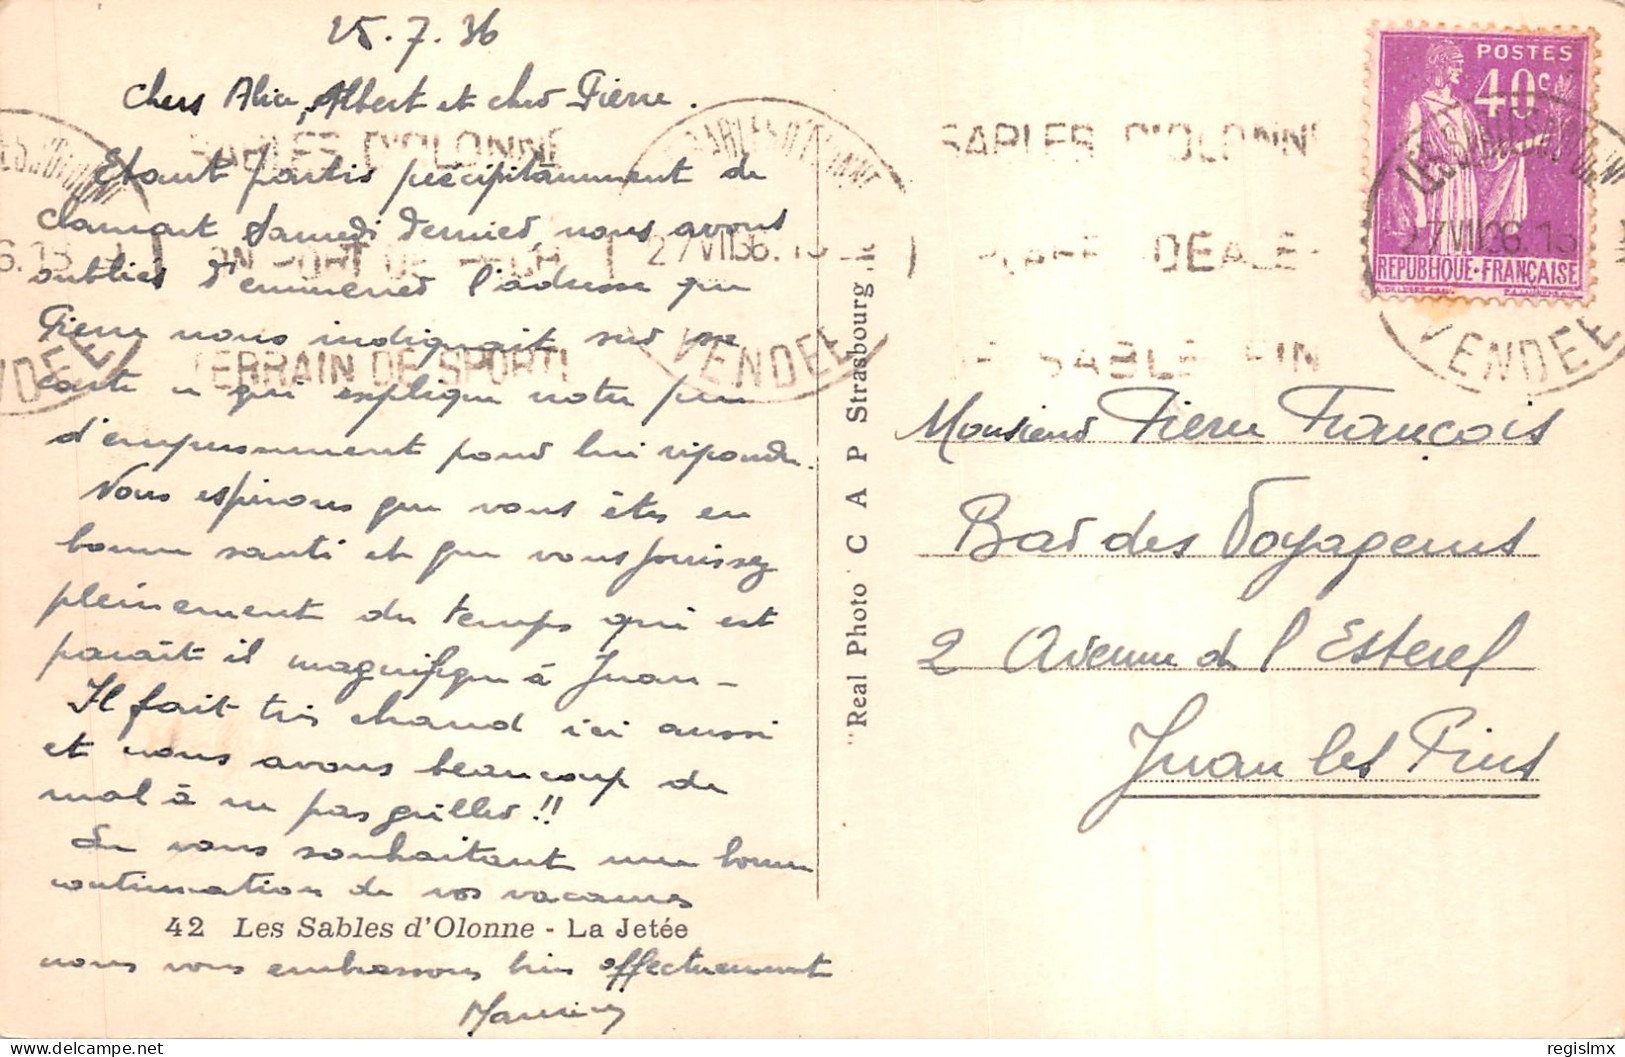 25.7.36
Chers Alice, Albert et cher Pierre.
Etant partis précipitamment de
Clamart Samedi dernier, nous avons
oubliés d'emmener l'adresse que
Pierre nous indiquait sur sa
carte ce qui explique notre peu
d'empressement pour lui répondre.
Nous espérons que vous êtes en
bonne santé et que vous jouissez
pleinement du temps qui est
parait il magnifique à Juan_
Il fait très chaud ici aussi
et nous avons beaucoup de
mal à ne pas griller!!
En vous souhaitant une bonne
continuation de vos vacances
42 Les Sables d'Olonne - La Jetée
nous vous embrassons bien affectueusement
"Real Photo" C A P Strasbourg
POSTES
40 c.
REPUBLIQUE·FRANÇAISE
SABLES D'OLONNE
SON PORT DE PÊCHE
TERRAIN DE SPORT!
LES SABLES D'OLONNE
27 VII 36. 15
VENDEE
SABLES D'OLONNE
PLAGE IDEALE
DE SABLE FIN
LES SABLES D'OLONNE
27 VII 36. 15
VENDEE
Monsieur Pierre François
Bar des Voyageurs
2 Avenue de l'Esterel
Juan les Pins
delcampe.net
regislmx